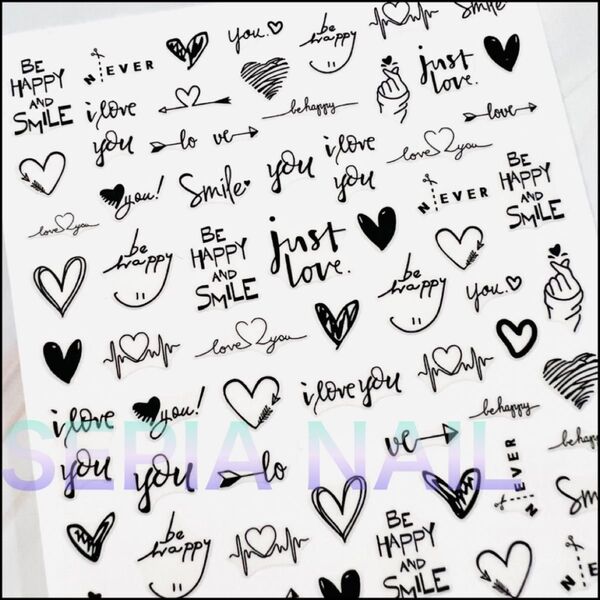 BE
HAPPY
AND
SMILE
N EVER
you.
be
happy
Smile
i love
you
be happy
just
love.
lo ve
you
i love
you
love you
love
you!
Smile
N EVER
BE
HAPPY
AND
SMILE
love you
be
happy
BE
HAPPY
AND
SMILE
just
love.
be
happy
you.
love you
i love
you
you!
i love you
be happy
ve
SEPIA NAIL
you
lo
N EVER
be happy
Sm
be
happy
BE
HAPPY
AND
SMILE
N EVER